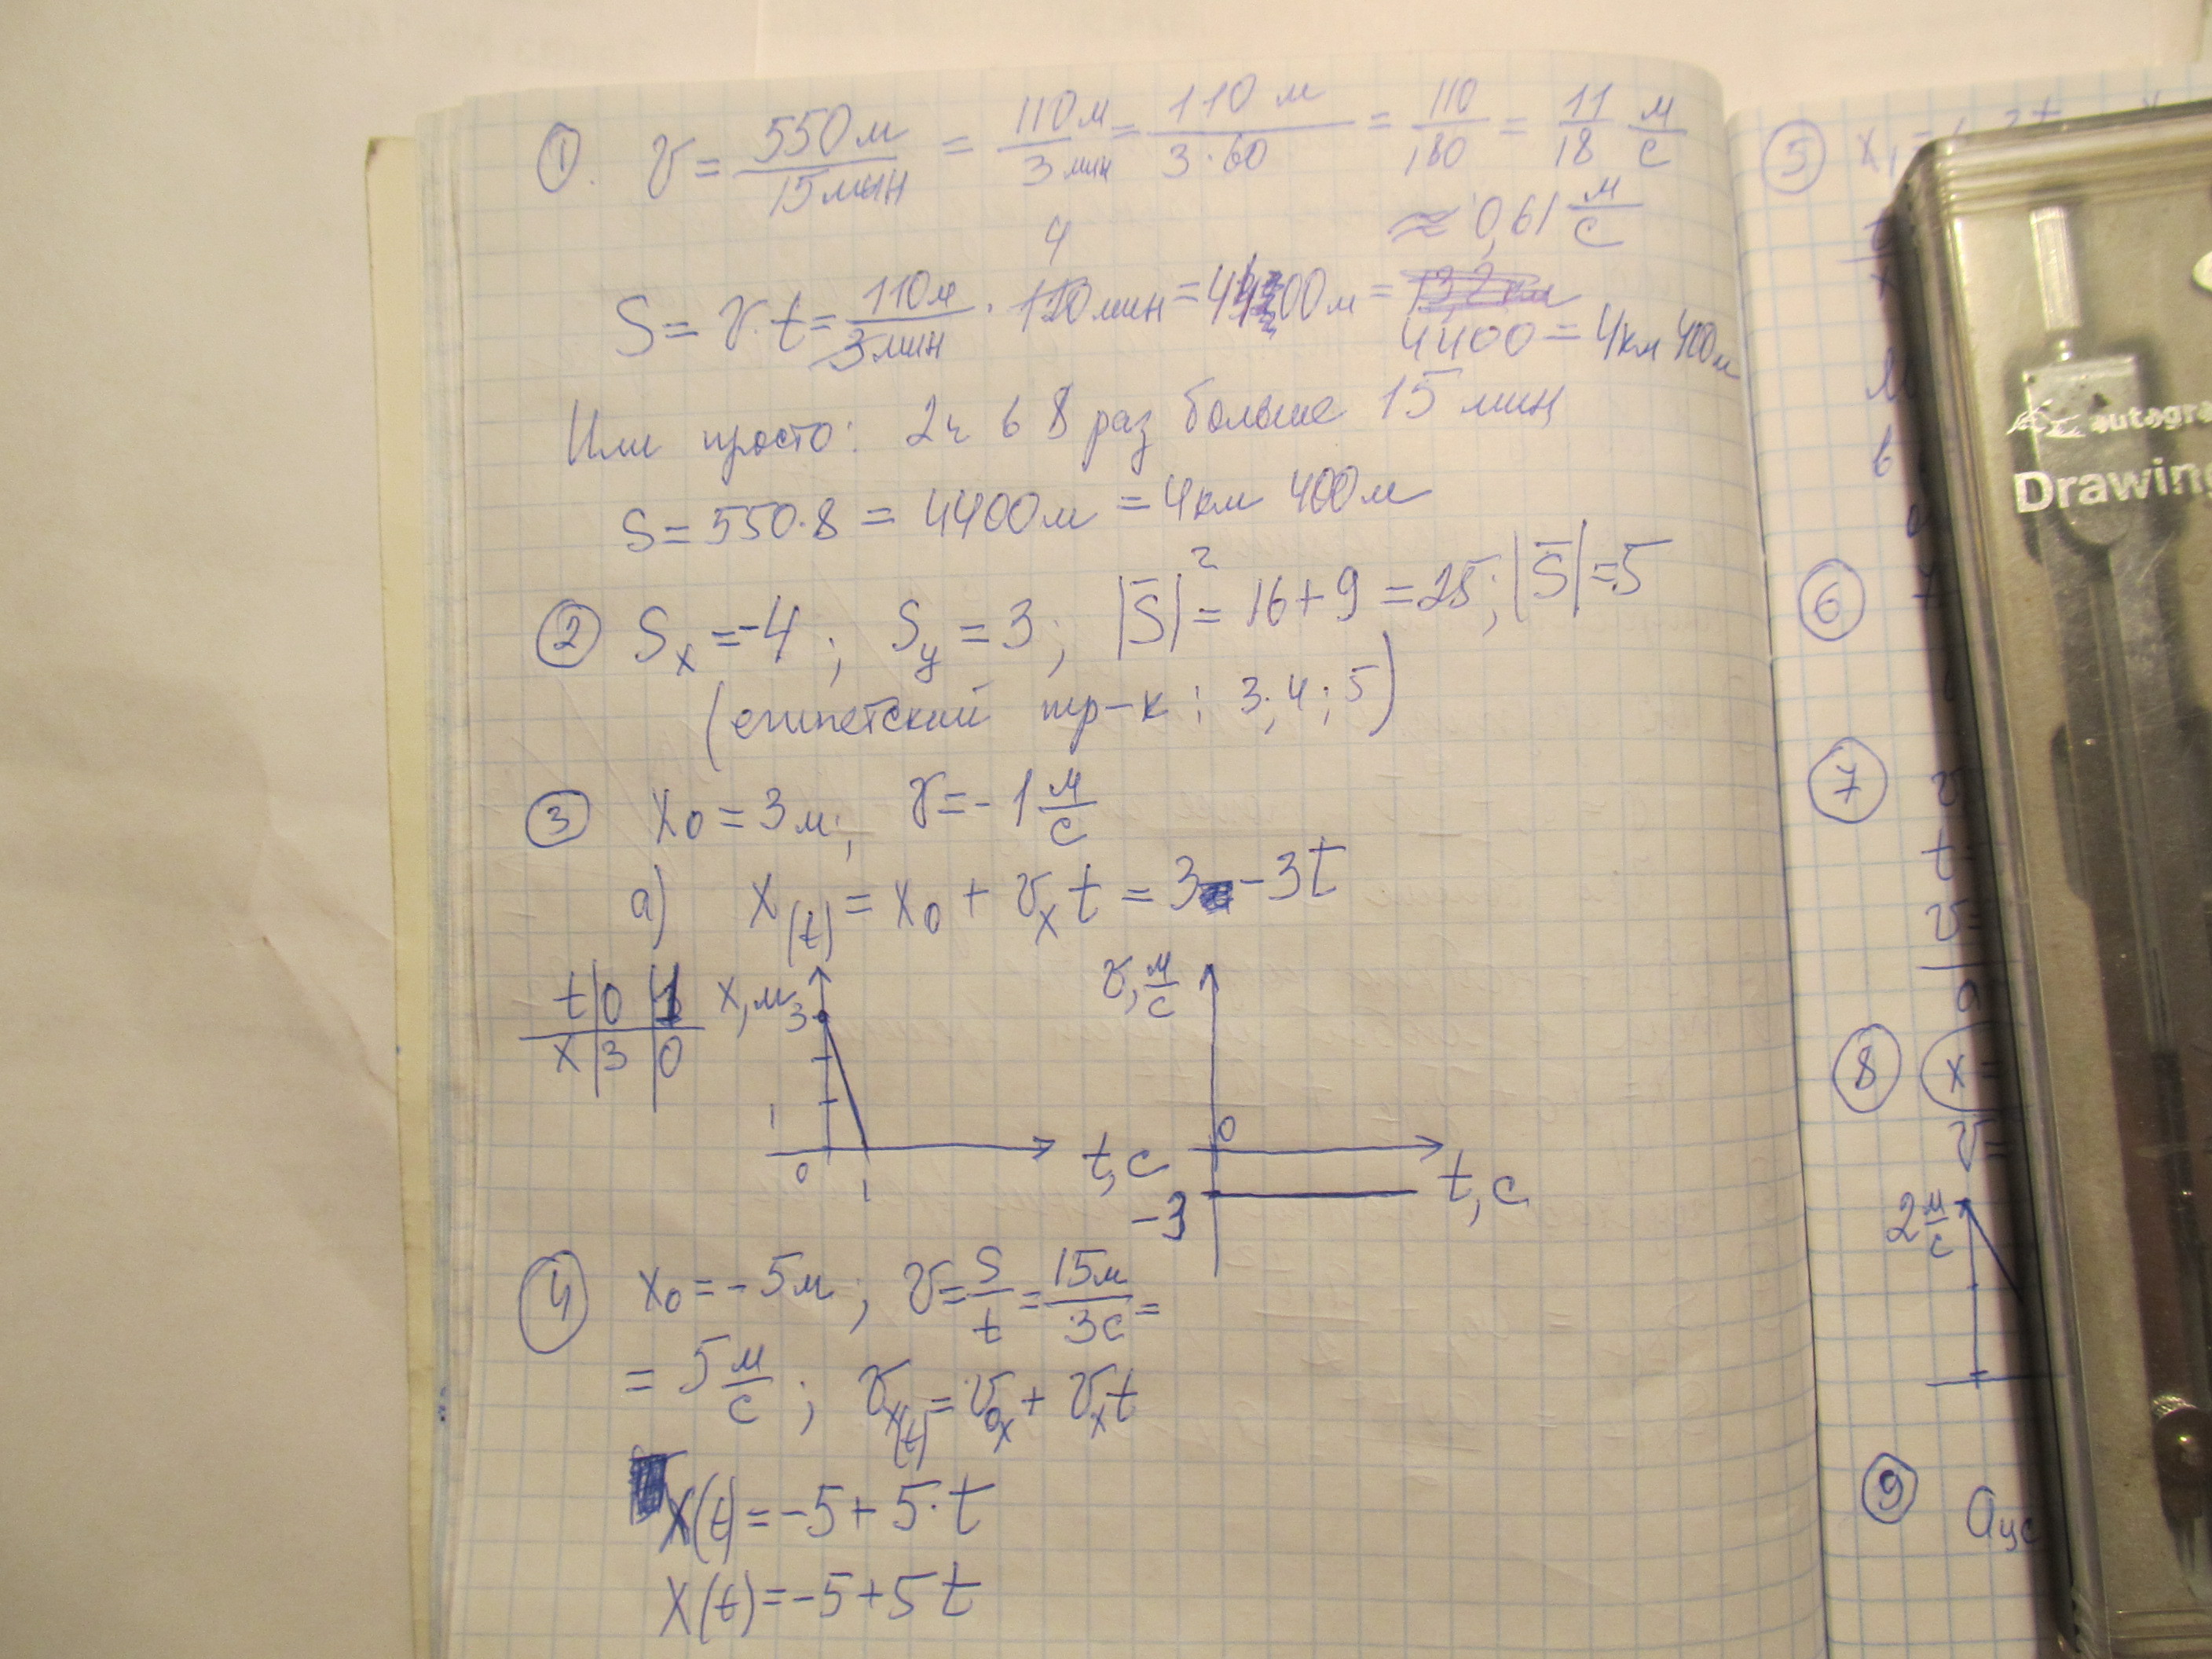 ① v = 550 м / 15 мин = 110 м / 3 мин = 110 м / 3·60 = 110/180 = 11/18 м/с
≈ 0,61 м/с
4
S = v·t = 110 м / 3 мин · 120 мин = 4400 м =
4400 = 4 км 400 м
Или просто: 2 ч в 8 раз больше 15 мин
S = 550·8 = 4400 м = 4 км 400 м
② Sx = -4 ; Sy = 3 ; |S̄|² = 16 + 9 = 25 ; |S̄| = 5
(египетский тр-к : 3; 4; 5)
③ x0 = 3 м ; v = - 1 м/с
а) x(t) = x0 + vx t = 3 - 3t
t | 0 | 1
x | 3 | 0
x, м
3
1
0
1
t, с
v, м/с
0
-3
t, с
④ x0 = -5 м ; v = S/t = 15 м / 3 с =
= 5 м/с ; vx(t) = v0x + vx t
x(t) = -5 + 5·t
x(t) = -5 + 5t
⑤
⑥
⑦
⑧ x
2 м/с
⑨
autogra
Drawing